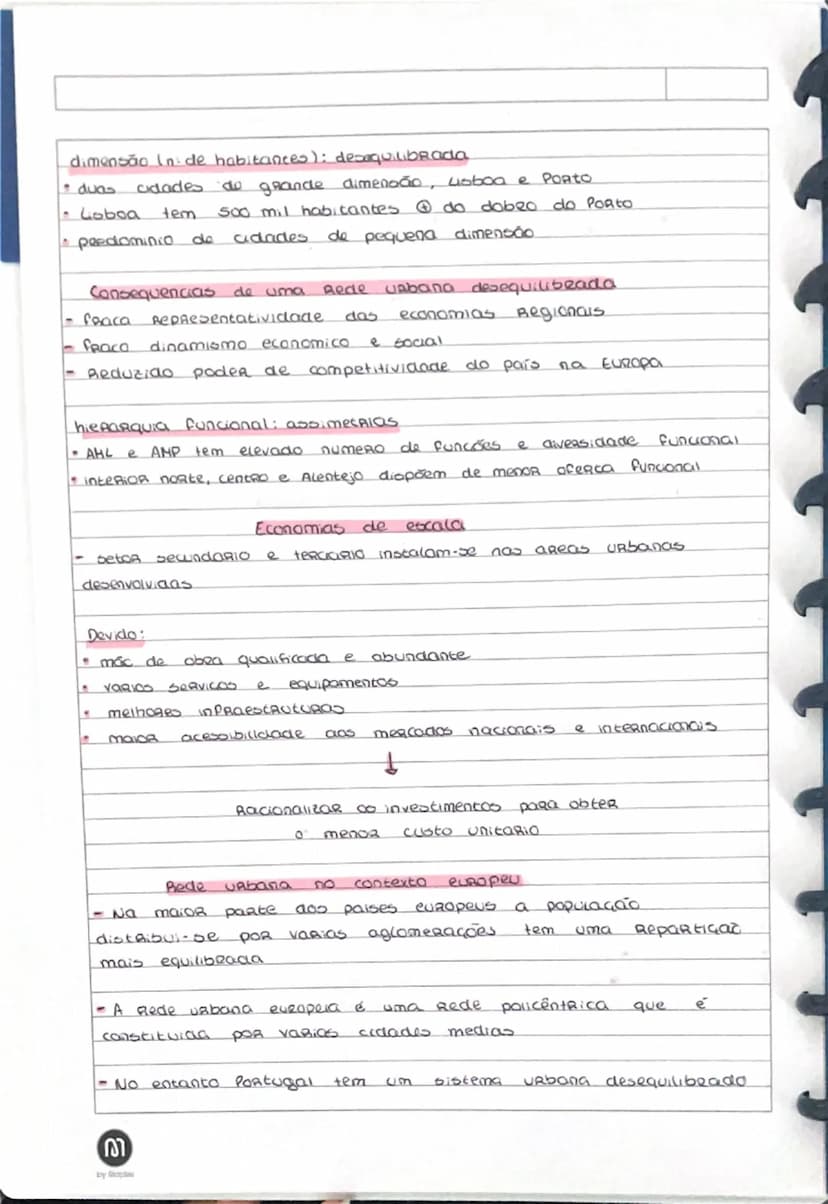 dimensão (n: de habitantes): desequilibrada
• duas cidades de grande dimensão, Lisboa e Porto
• Lisboa tem 500 mil habitantes ⊕ do dobro do Porto
• predominio de cidades de pequena dimensão
Consequencias de uma Rede urbana desequilibrada
- fraca representatividade das economias Regionais
- fraco dinamismo economico e social
- Reduzido poder de competitividade do país na Europa
hierarquia funcional: assimetrias
• AML e AMP tem elevado numero de funções e diversidade funcional
• interior norte, centro e Alentejo dispõem de menor oferta funcional
Economias de escala
- setor secundario e terciario instalam-se nas areas urbanas
desenvolvidas
Devido:
• mão de obra qualificada e abundante
• varios servicos e equipamentos
• melhores infraestruturas
• maior acessibilidade aos mercados nacionais e internacionais
↓
Racionalizar os investimentos para obter
o menor custo unitario
Rede urbana no contexto europeu
- Na maior parte dos paises europeus a população
distribui-se por varias aglomerações tem uma repartiçao
mais equilibrada
- A Rede urbana europeia é uma Rede policêntrica que é
constituida por varias cidades medias
- No entanto Portugal tem um sistema urbana desequilibrado
by Staples